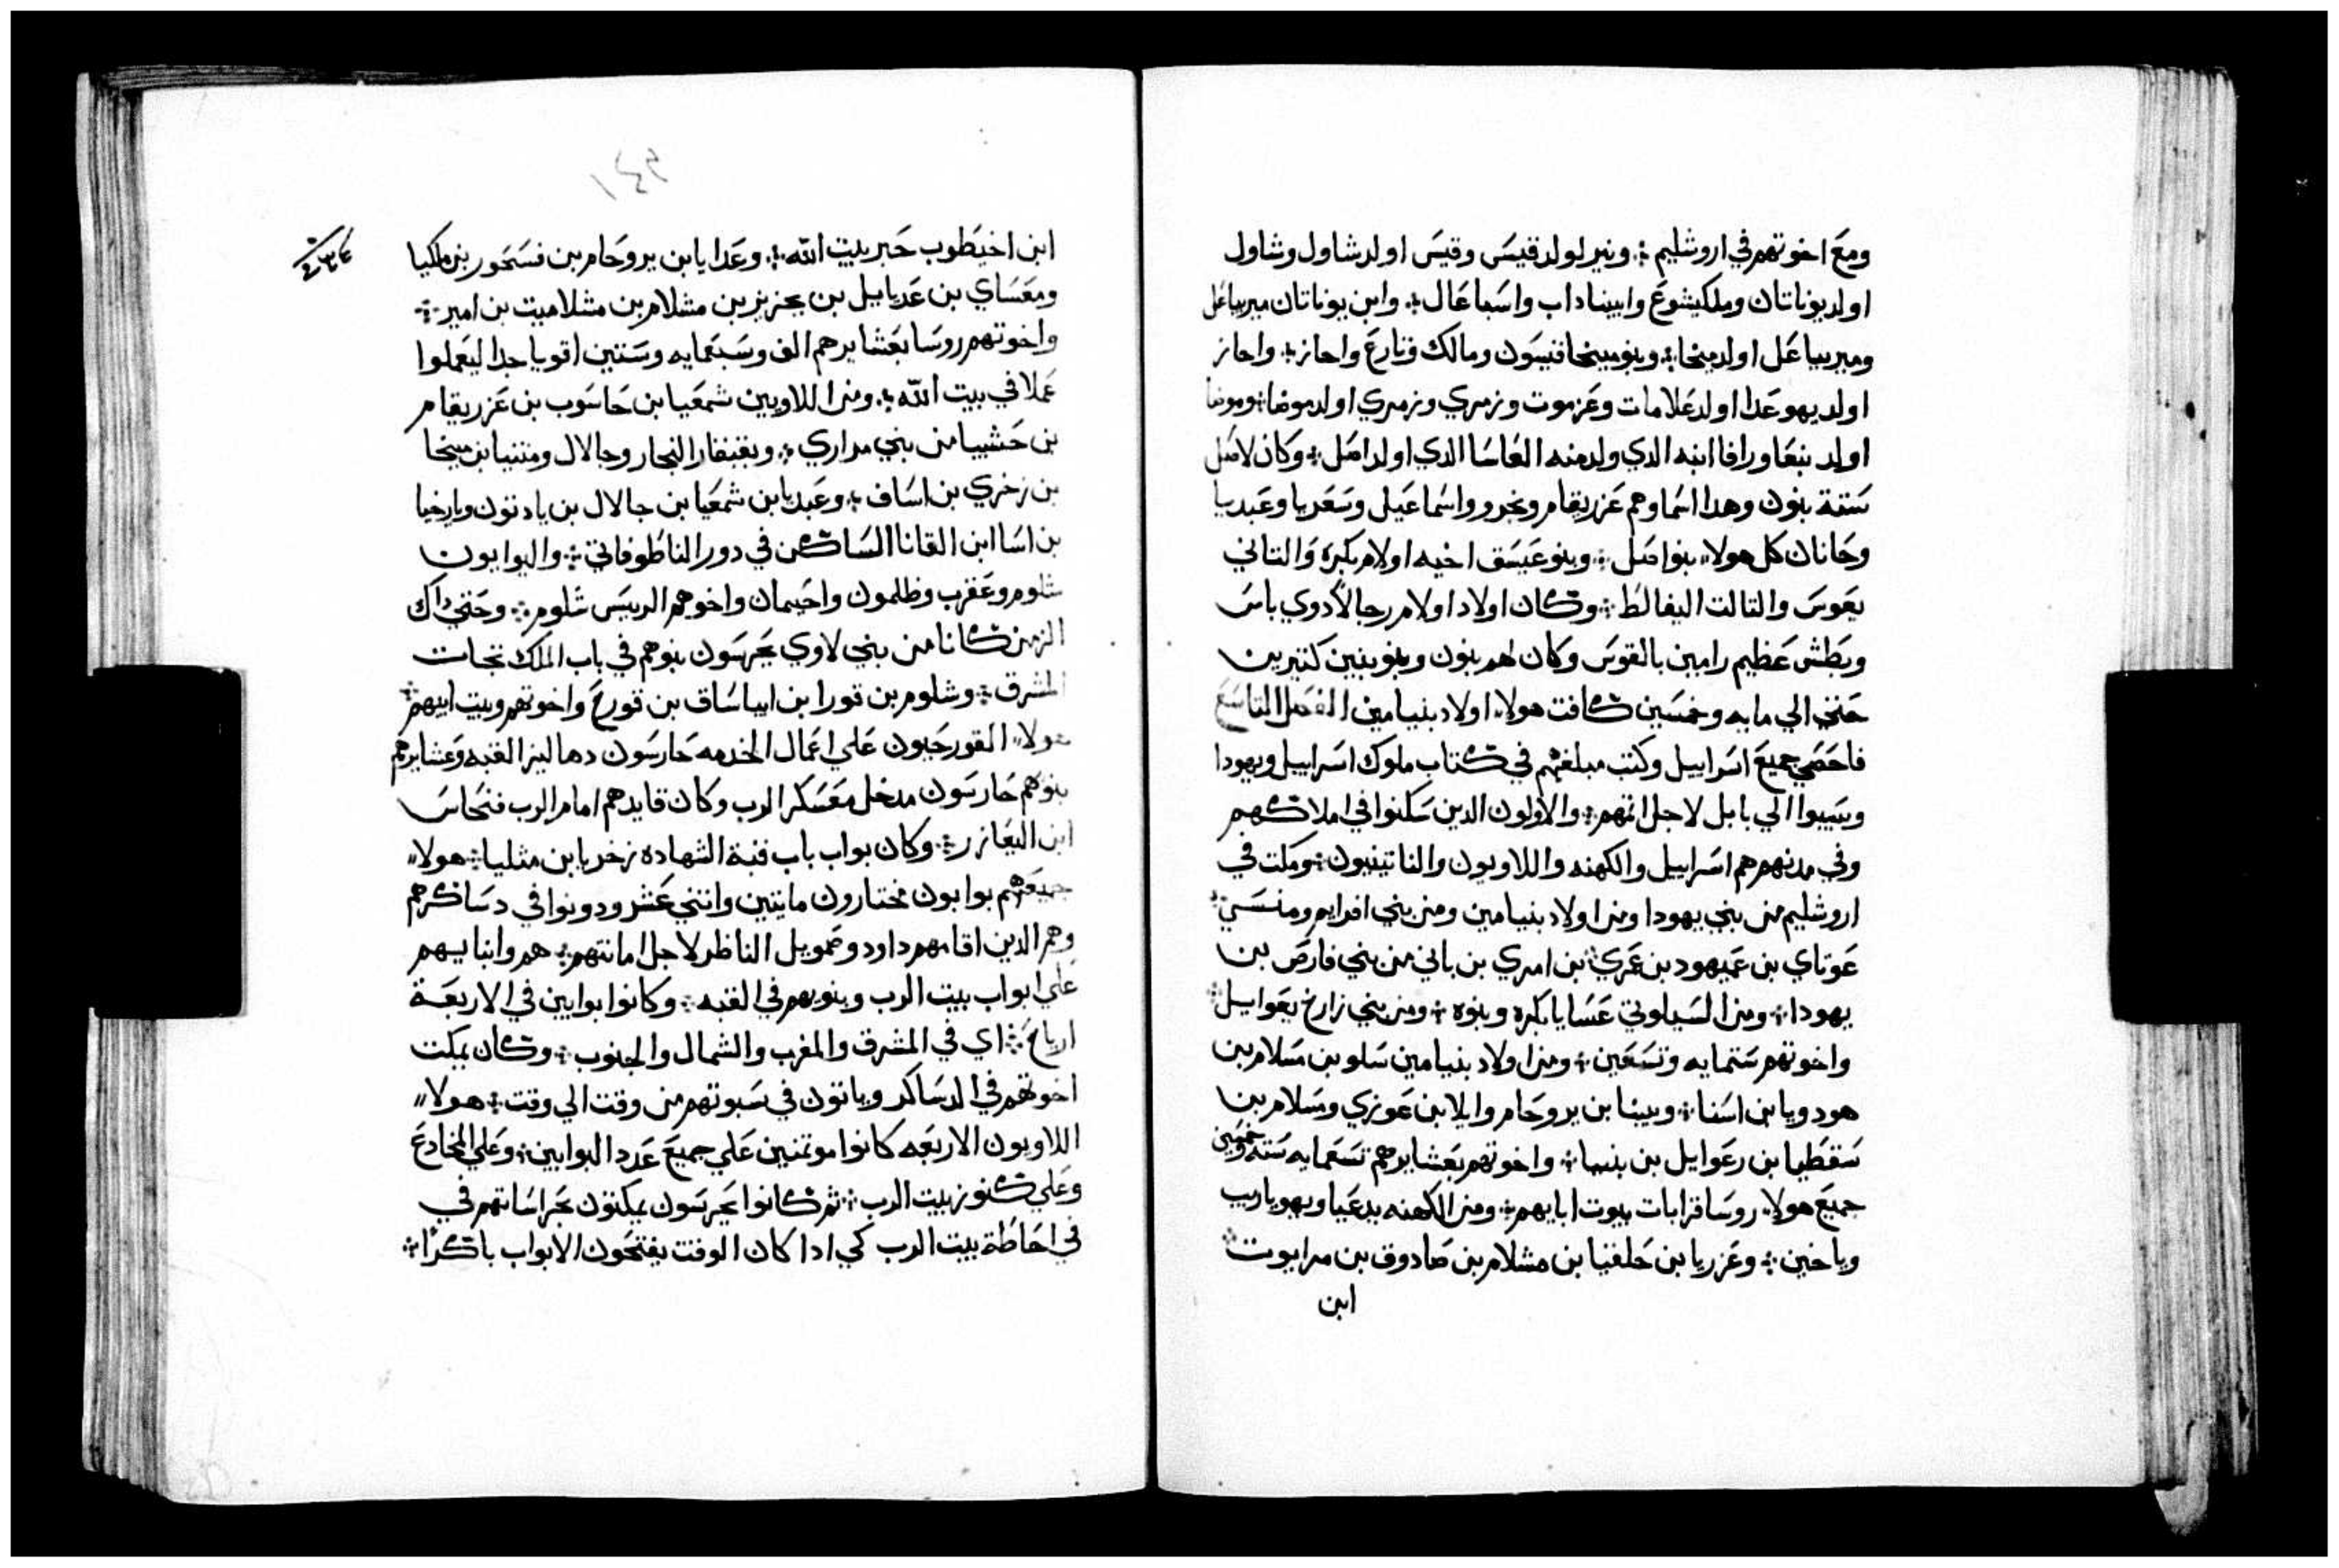 ومع اخوتهم في اروشليم ۞ ونير لولد قيس وقيس اولد شاول وشاول
اولد يوناتان وملكيشوع وابيناداب واسباعال ۞ وابن يوناتان ميريباعل
وميريباعل اولد ميخا ۞ وبنو ميخا فيسون ومالك وتارع واحاز ۞ واحاز
اولد يهوعدا اولد علامات وعزموت وزمري وزمري اولد موضا ۞ وموضا
اولد بنعا ورافا ابنه الدي ولد منه العاسا الدي اولد اصل ۞ وكان لاصل
ستة بنون وهدا اسماوهم عزريقام وبخرور واسماعيل وسعريا وعبديا
وحانان كل هولاء بنو اصل ۞ وبنو عيسق اخيه اولام بكره والتاني
يعوس والتالت اليفالط ۞ وكان اولاد اولام رجالا دوي باس
وبطش عظيم رامين بالقوس وكان لهم بنون وبنو بنين كتيرين
حتي الي مايه وخمسين كافت هولاء اولاد بنيامين الفصل التاسع
فاحصي جميع اسراييل وكتب مبلغهم في كتاب ملوك اسراييل ويهودا
وسيبوا الي بابل لاجل اتمهم ۞ والاولون الدين سكنوا في املاكهم
وفي مدنهم هم اسراييل والكهنه واللاويون والناتينيون ۞ ومكت في
اروشليم من بني يهودا ومن اولاد بنيامين ومن بني افرايم ومنسي ۞
عوتاي بن عميهود بن عمري بن امري بن باني من بني فارص بن
يهودا ۞ ومن السيلوني عسايا بكره وبنوه ۞ ومن بني زارخ يعواييل ۞
واخوتهم ستمايه وتسعين ۞ ومن اولاد بنيامين سلو بن مسلام بن
هودويا بن اسنا ۞ ويبنا بن يروحام وايلا بن عوزي ومسلام بن
سقطيا بن رعوايل بن بنييا ۞ واخوتهم بعشايرهم تسعمايه سته وخمسين
جميع هولاء روسا قرابات بيوت ابايهم ۞ ومن الكهنه يدعيا ويهوياريب
وياخين ۞ وعزريا بن حلقيا بن مشلام بن صادوق بن مرايوت
ابن
١٤٣
ابن اخيطوب حبر بيت الله ۞ وعدايا بن يروحام بن فسحور بن ملكيا
ومعساي بن عديايل بن يحزيز بن مشلام بن مشلاميت بن امير ۞
واخوتهم روسا بعشايرهم الف وسبعمايه وستين اقويا جدا ليعملوا
عملا في بيت الله ۞ ومن اللاويين شمعيا بن حاسوب بن عزريقام
بن حشبيا من بني مراري ۞ وبقبقار النجار وجالال ومتنيا بن ميخا
بن زخري بن اساف ۞ وعبديا بن شمعيا بن جالال بن يادتون وبارخيا
بن اسا ابن القانا الساكن في دور الناطوفاتي ۞ والبوابون
شلوم وعقرب وطلمون واحيمان واخوهم الرييس شلوم ۞ وحتي داك
الزمن كانا من بني لاوي يحرسون بنوهم في باب الملك تجات
المشرق ۞ وشلوم بن قورا بن ابياساف بن قورع واخوتهم وبيت ابيهم ۞
هولاء القورحيون علي اعمال الخدمه حارسون دهاليز القبه وعشايرهم
بنوهم حارسون مدخل معسكر الرب وكان قايدهم امام الرب فنحاس
ابن اليعازر ۞ وكان بواب باب قبة الشهاده زخريا بن مثليا ۞ هولاء
جميعهم بوابون مختارون مايتين واتني عشر ودونوا في دساكرهم
وهم الدين اقامهم داود وصمويل الناظر لاجل امانتهم ۞ هم وابنايهم
علي ابواب بيت الرب وبنويهم في القبه ۞ وكانوا بوابين في الاربعة
ارياح ۞ اي في المشرق والمغرب والشمال والجنوب ۞ وكان يمكت
اخوتهم في الدساكر وياتون في سبوتهم من وقت الي وقت ۞ هولاء
اللاويون الاربعه كانوا موتمنين علي جميع عدد البوابين ۞ وعلي المخادع
وعلي كنوز بيت الرب ۞ تم كانوا يحرسون يمكتون بحراساتهم في
في احاطة بيت الرب كي ادا كان الوقت يفتحون الابواب باكرا ۞